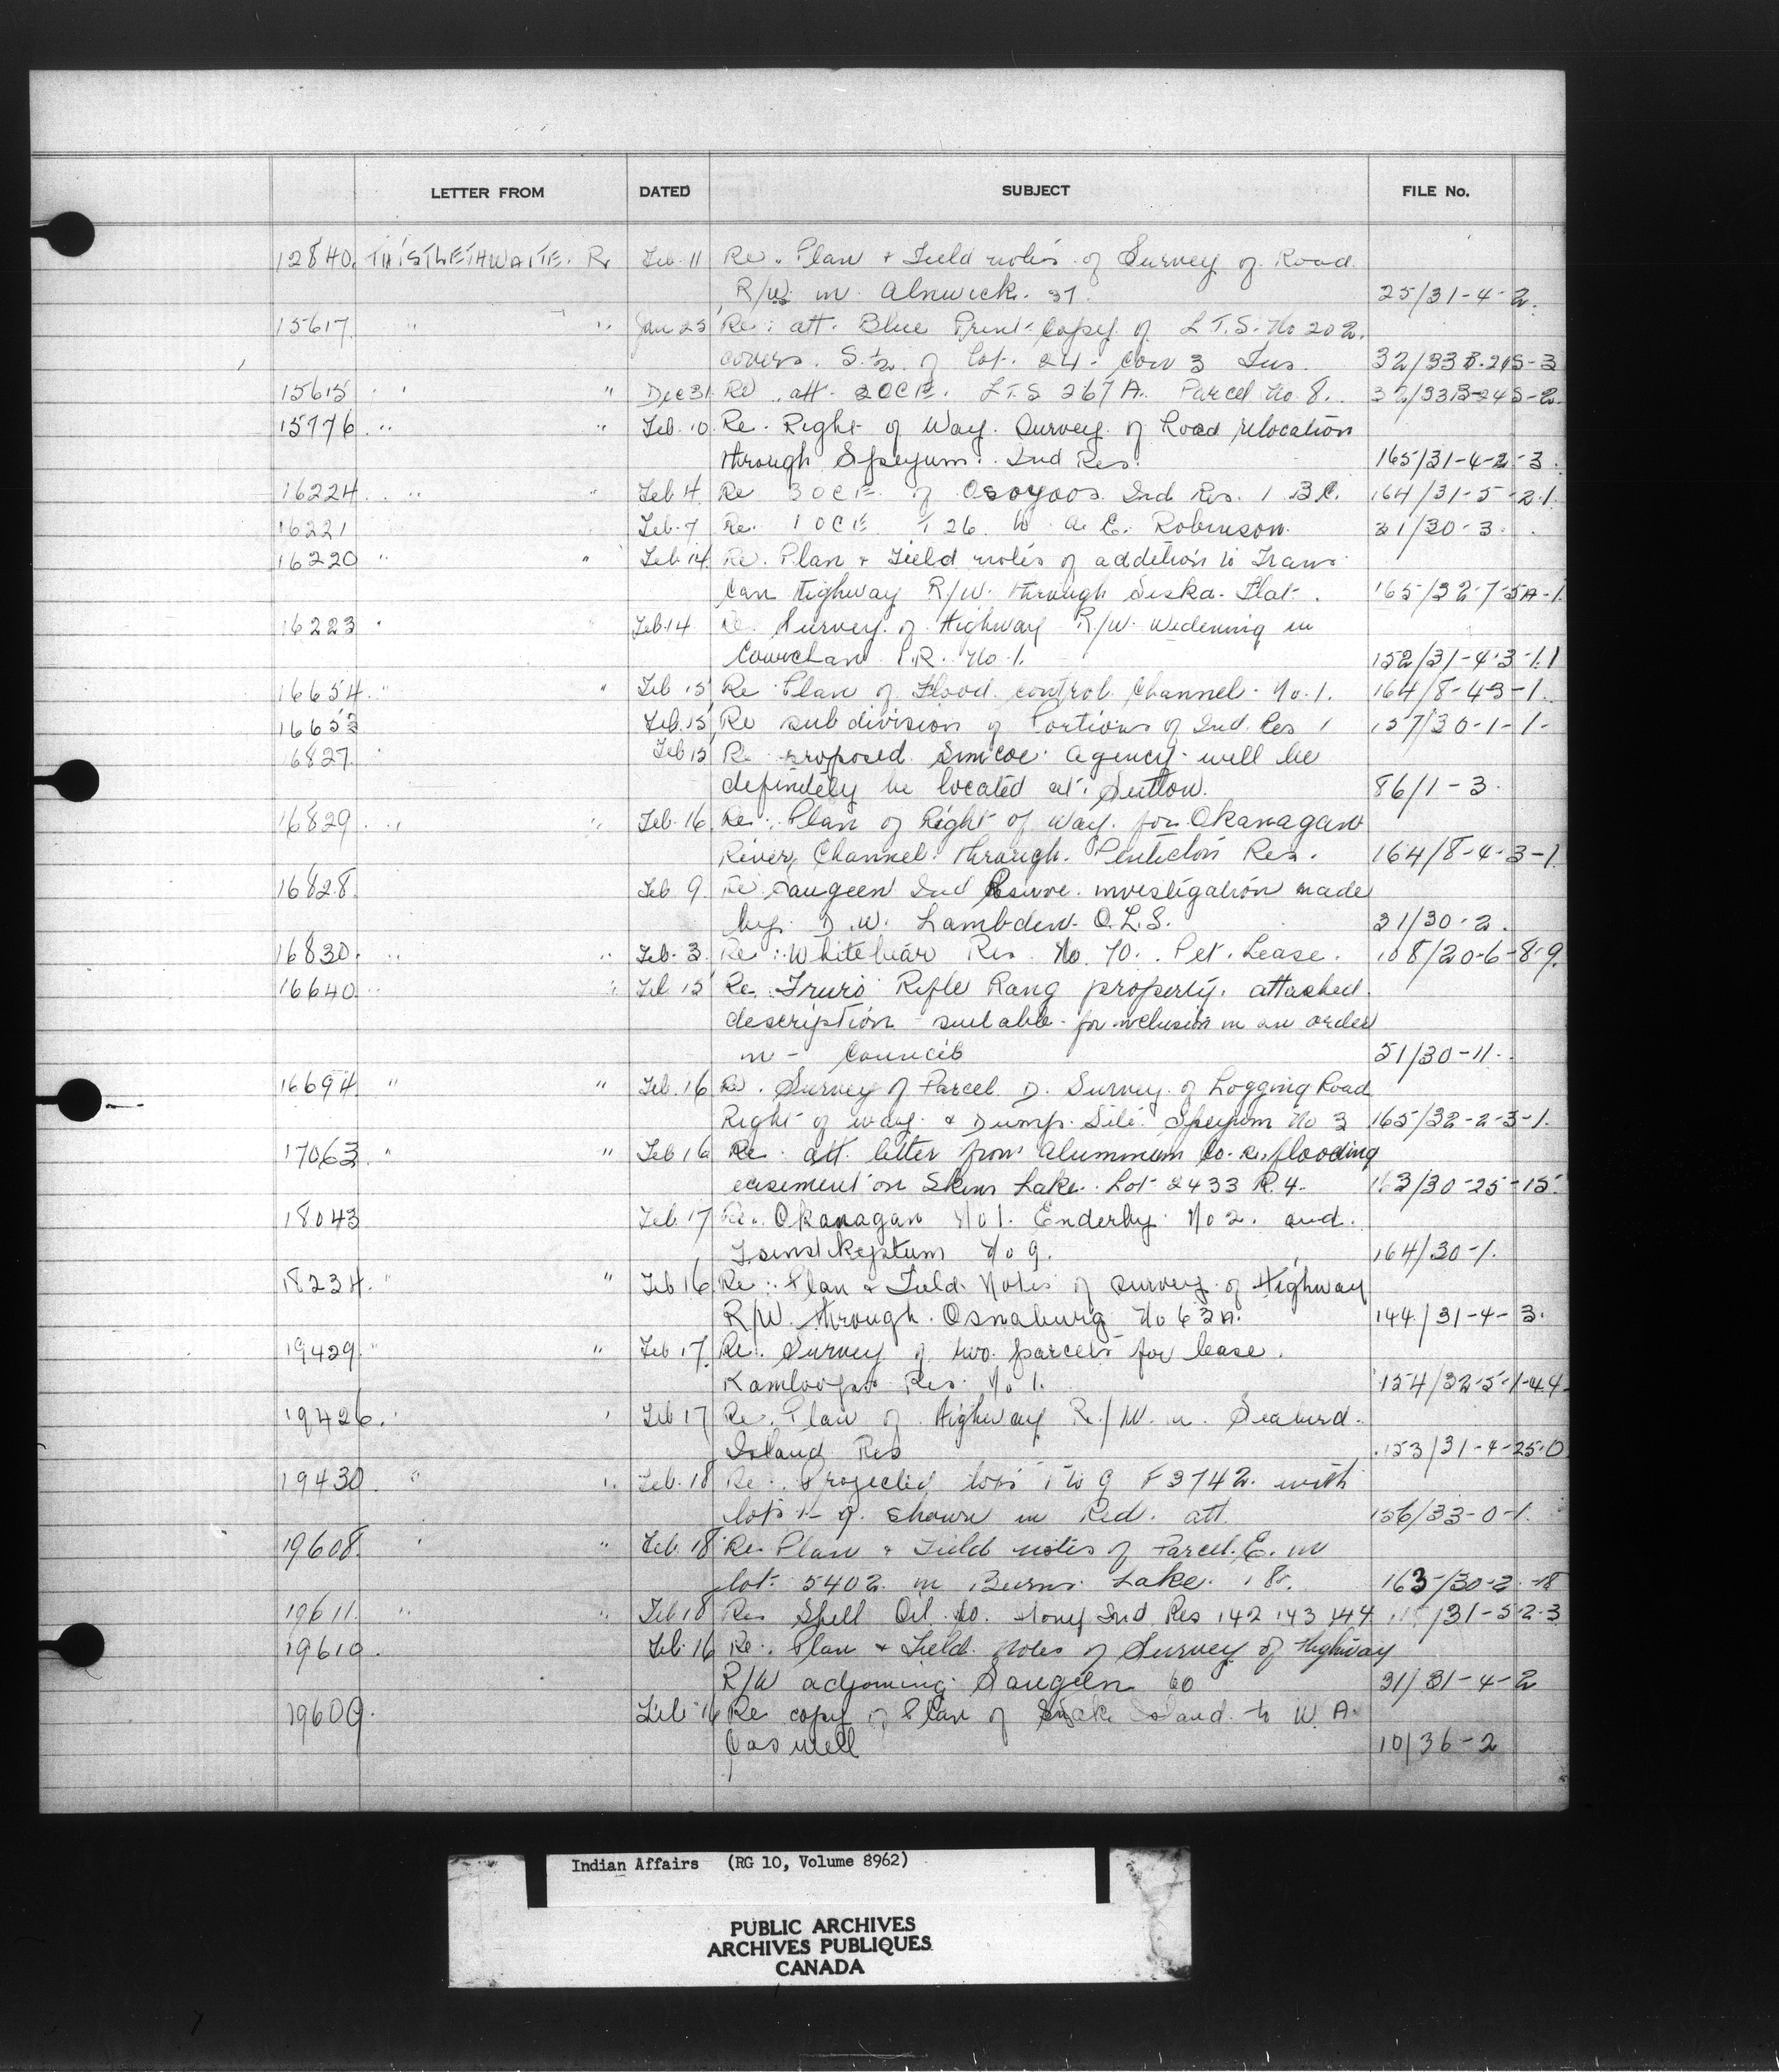 LETTER FROM DATED SUBJECT FILE No.
12840. THISTLETHWAITE. R. Feb. 11 Re. Plan & Field notes of Survey of Road
R/W in Alnwick. 37. 25/31-4-2.
15617. " " Jan 25 Re: att. Blue Print Copy of L.T.S. No 202.
covers. S. ½ of Lot. 24- Con 3 Tus. 32/33B-245-3
15615 " " Dec 31 Re att. LTS 267A. Parcel No. 8. 32/33B-245-2.
15776 " " Feb. 10 Re. Right of Way. Survey of Road relocation
through Speyum. Ind Res. 165/31-4-2-3.
16224. " " Feb 4. Re of Osoyoos Ind Res. 1 B.C. 164/31-5-2-1.
16221 Feb. 7 Re. A. E. Robinson. 31/30-3.
16220 " " Feb 14 Re. Plan & Field notes of addition to Trans
Can Highway R/W. through Siska. Flat. 165/32-7-5A-1.
16223 " Feb. 14 Re. Survey of Highway R/W. widening in
Cowichan I.R. No 1. 152/31-4-3-1.1
16654. " " Feb 15 Re Plan of Flood control Channel No. 1. 164/8-4-3-1.
16653 Feb. 15 Re subdivision of Portions of Ind. Res 1 157/30-1-1-
16827. Feb 15 Re proposed Simcoe Agency will be
definitely be located at. Sutton. 86/1-3.
16829. " " Feb. 16 Re: Plan of Right of Way. for Okanagan
River Channel. through. Penticton Res. 164/8-4-3-1.
16828. Feb 9. Re Saugeen Ind Reserve. investigation made
by. D. W. Lambden. O.L.S. 31/30-2.
16830. " " Feb. 3. Re: Whitebear Res No. 70. Pet. Lease. 108/20-6-8-9.
16640. " " Feb 15 Re Truro Rifle Rang property. attached.
description suitable for inclusion in an order
in - Council 51/30-11.
16694. " " Feb. 16 Re. Survey of Parcel D. Survey of Logging Road
Right of way. & Dump. Site. Speyum No 3 165/32-2-3-1.
17063. " " Feb 16 Re. att. letter from Aluminum Co. re. flooding
easement on Skins Lake. Lot 2433 R.4. 163/30-25-15.
18043 Feb. 17 Re. Okanagan No 1. Enderby. No 2. and.
Tsinstikeptum No 9. 164/30-1.
18234. " " Feb 16 Re: Plan & Field. Notes of Survey of Highway
R/W. through. Osnaburg No 63A. 144/31-4-3.
19429. " " Feb 17. Re. Survey of two parcels for lease.
Kamloops Res. No 1. 154/32-5-1-44
19426. " " Feb 17 Re. Plan of Highway R/W. in. Seabird.
Island Res 153/31-4-25-0
19430. " " Feb. 18 Re: Projected lots 1 to 9 F3742. with
lots 1-9. shown in Red. att. 156/33-0-1.
19608. " " Feb. 18 Re Plan & Field notes of Parcel. E. in
lot. 5402. in Burns. Lake. 18. 163/30-2-18
19611. " " Feb 18 Re Shell Oil. Co. Stoney Ind Res 142 143 144 /31-5-2-3
19610. Feb. 16 Re. Plan & Field. Notes of Survey of Highway
R/W adjoining Saugeen 60 31/31-4-2
19609. Feb 16 Re copy of Plan of Snake Island to W. A.
Caswell 10/36-2
Indian Affairs (RG 10, Volume 8962)
PUBLIC ARCHIVES
ARCHIVES PUBLIQUES
CANADA